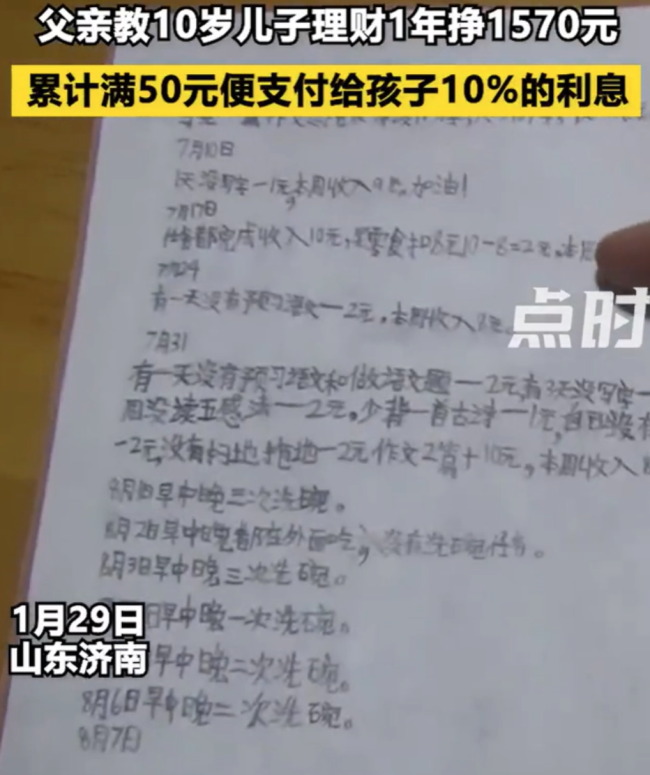 父亲教10岁儿子理财1年挣1570元
累计满50元便支付给孩子10%的利息
7月10日
1天没写字一1元,本周收入9元。加油!
7月17日
都完成收入10元,买零食扣8元10-8=2元。本周
7月24
有一天没有预习语文一2元,本周收入8元。
点时
7月31
有一天没有预习语文和做语文题一2元,有3天没写字一
周没读五感法一2元。少背一首古诗一1元,
-2元,没有扫地拖地一2元作文2篇+10元,本周收入
8月1日早中晚三次洗碗。
8月2日早中晚都在外面吃,没有洗碗任务。
8月3日早中晚三次洗碗。
日早中晚一次洗碗。
早中晚二次洗碗。
8月6日早中晚二次洗碗。
8月7日
1月29日
山东济南